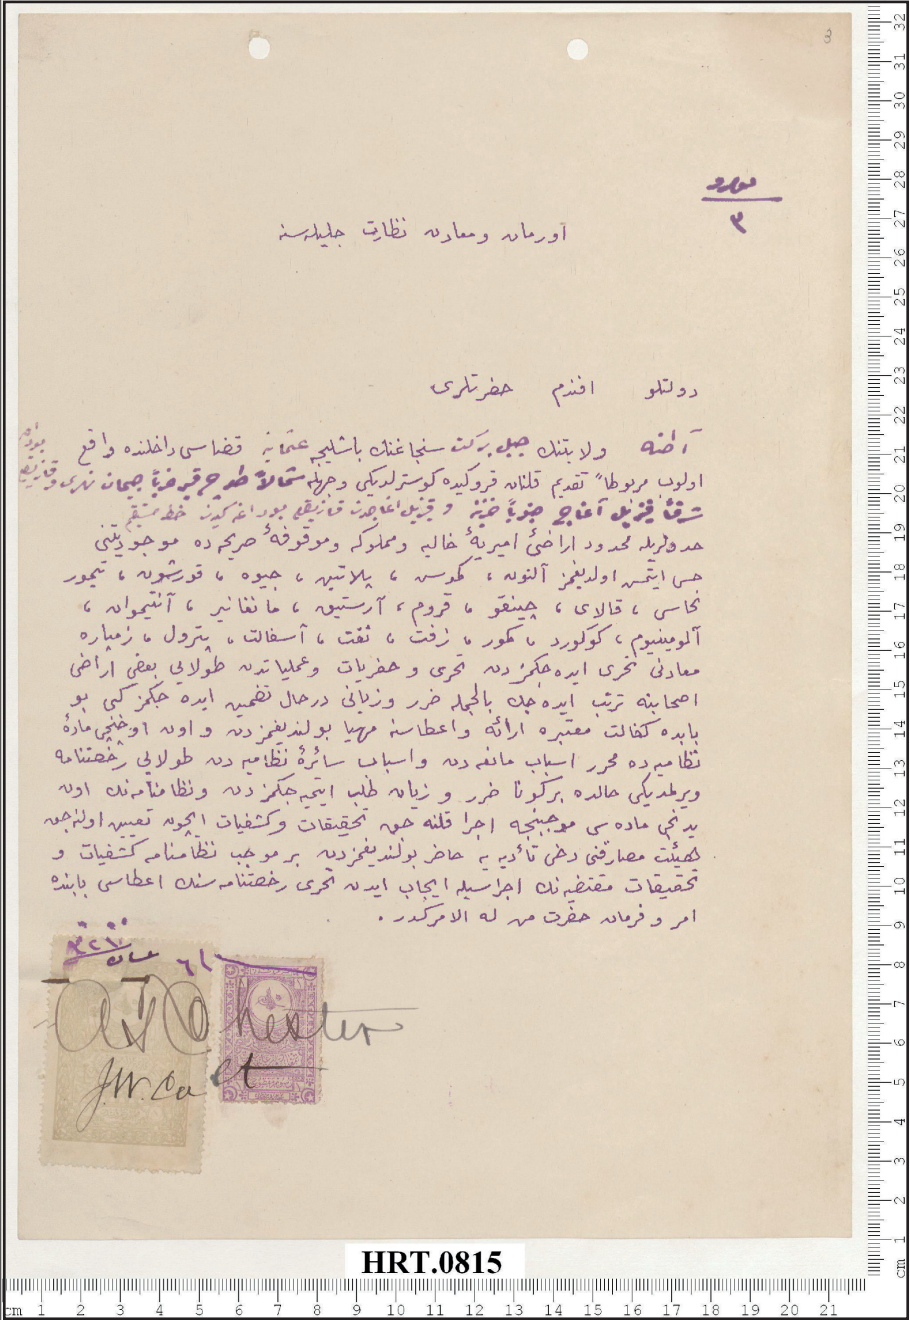 3
نومرو
٣
اورمان ومعادن نظارت جليله سنه
دولتلو افندم حضرتلرى
آطنه ولايتنك جبل بركت سنجاغنك باغليجه عثمانيه قضاسى داخلنده واقع
اولوب مربوطاً تقديم قلنان قروكيده كوسترلديكى وجهله شمالاً غرباً جيحان نهرى
شرقاً قيزيل آغاج جنوباً و قيزيل اغاجدن خط مستقيم
حدودلريله محدود اراضئ اميريهٔ خاليه ومملوكه وموقوفهٔ صريحه ده موجوديتنى
حس ايتمش اولديغمز آلتون ، كومش ، پلاتين ، جيوه ، قورشون ، تيمور
نحاسى ، قالاى ، چينقو ، قروم ، آرسنيق ، مانغانيز ، آنتيموان ،
آلومينيوم ، كوكورد ، كمور ، زفت ، نفت ، آسفالت ، پترول ، زمپاره
معادنى تحرى ايده جكمزدن تحرى و حفريات وعملياتدن طولايى بعض اراضى
اصحابنه ترتب ايده جك بالجمله ضرر وزيانى درحال تضمين ايده جكمز كبى بو
بابده كفالت معتبره ارائه واعطاسنه مهيا بولنديغمزدن و اون اوچنجى مادهٔ
نظاميه ده محرر اسباب مانعه دن واسباب سائرهٔ نظاميه دن طولايى رخصتنامه
ويرلمديكى حالده بركونا ضرر و زيان طلب ايتميه جكمزدن ونظامنامه نك اون
يدنجى ماده سى موجبنجه اجرا قلنه جق تحقيقات وكشفيات ايچون تعيين اولنه جق
هيئت مصارفنى دخى تأديه يه حاضر بولنديغمزدن برموجب نظامنامه كشفيات و
تحقيقات مقتضيه نك اجراسيله ايجاب ايدن تحرى رخصتنامه سنك اعطاسى بابنده
امر و فرمان حضرت من له الامركدر .
نيسان
Chester
J.W. Colt
HRT.0815